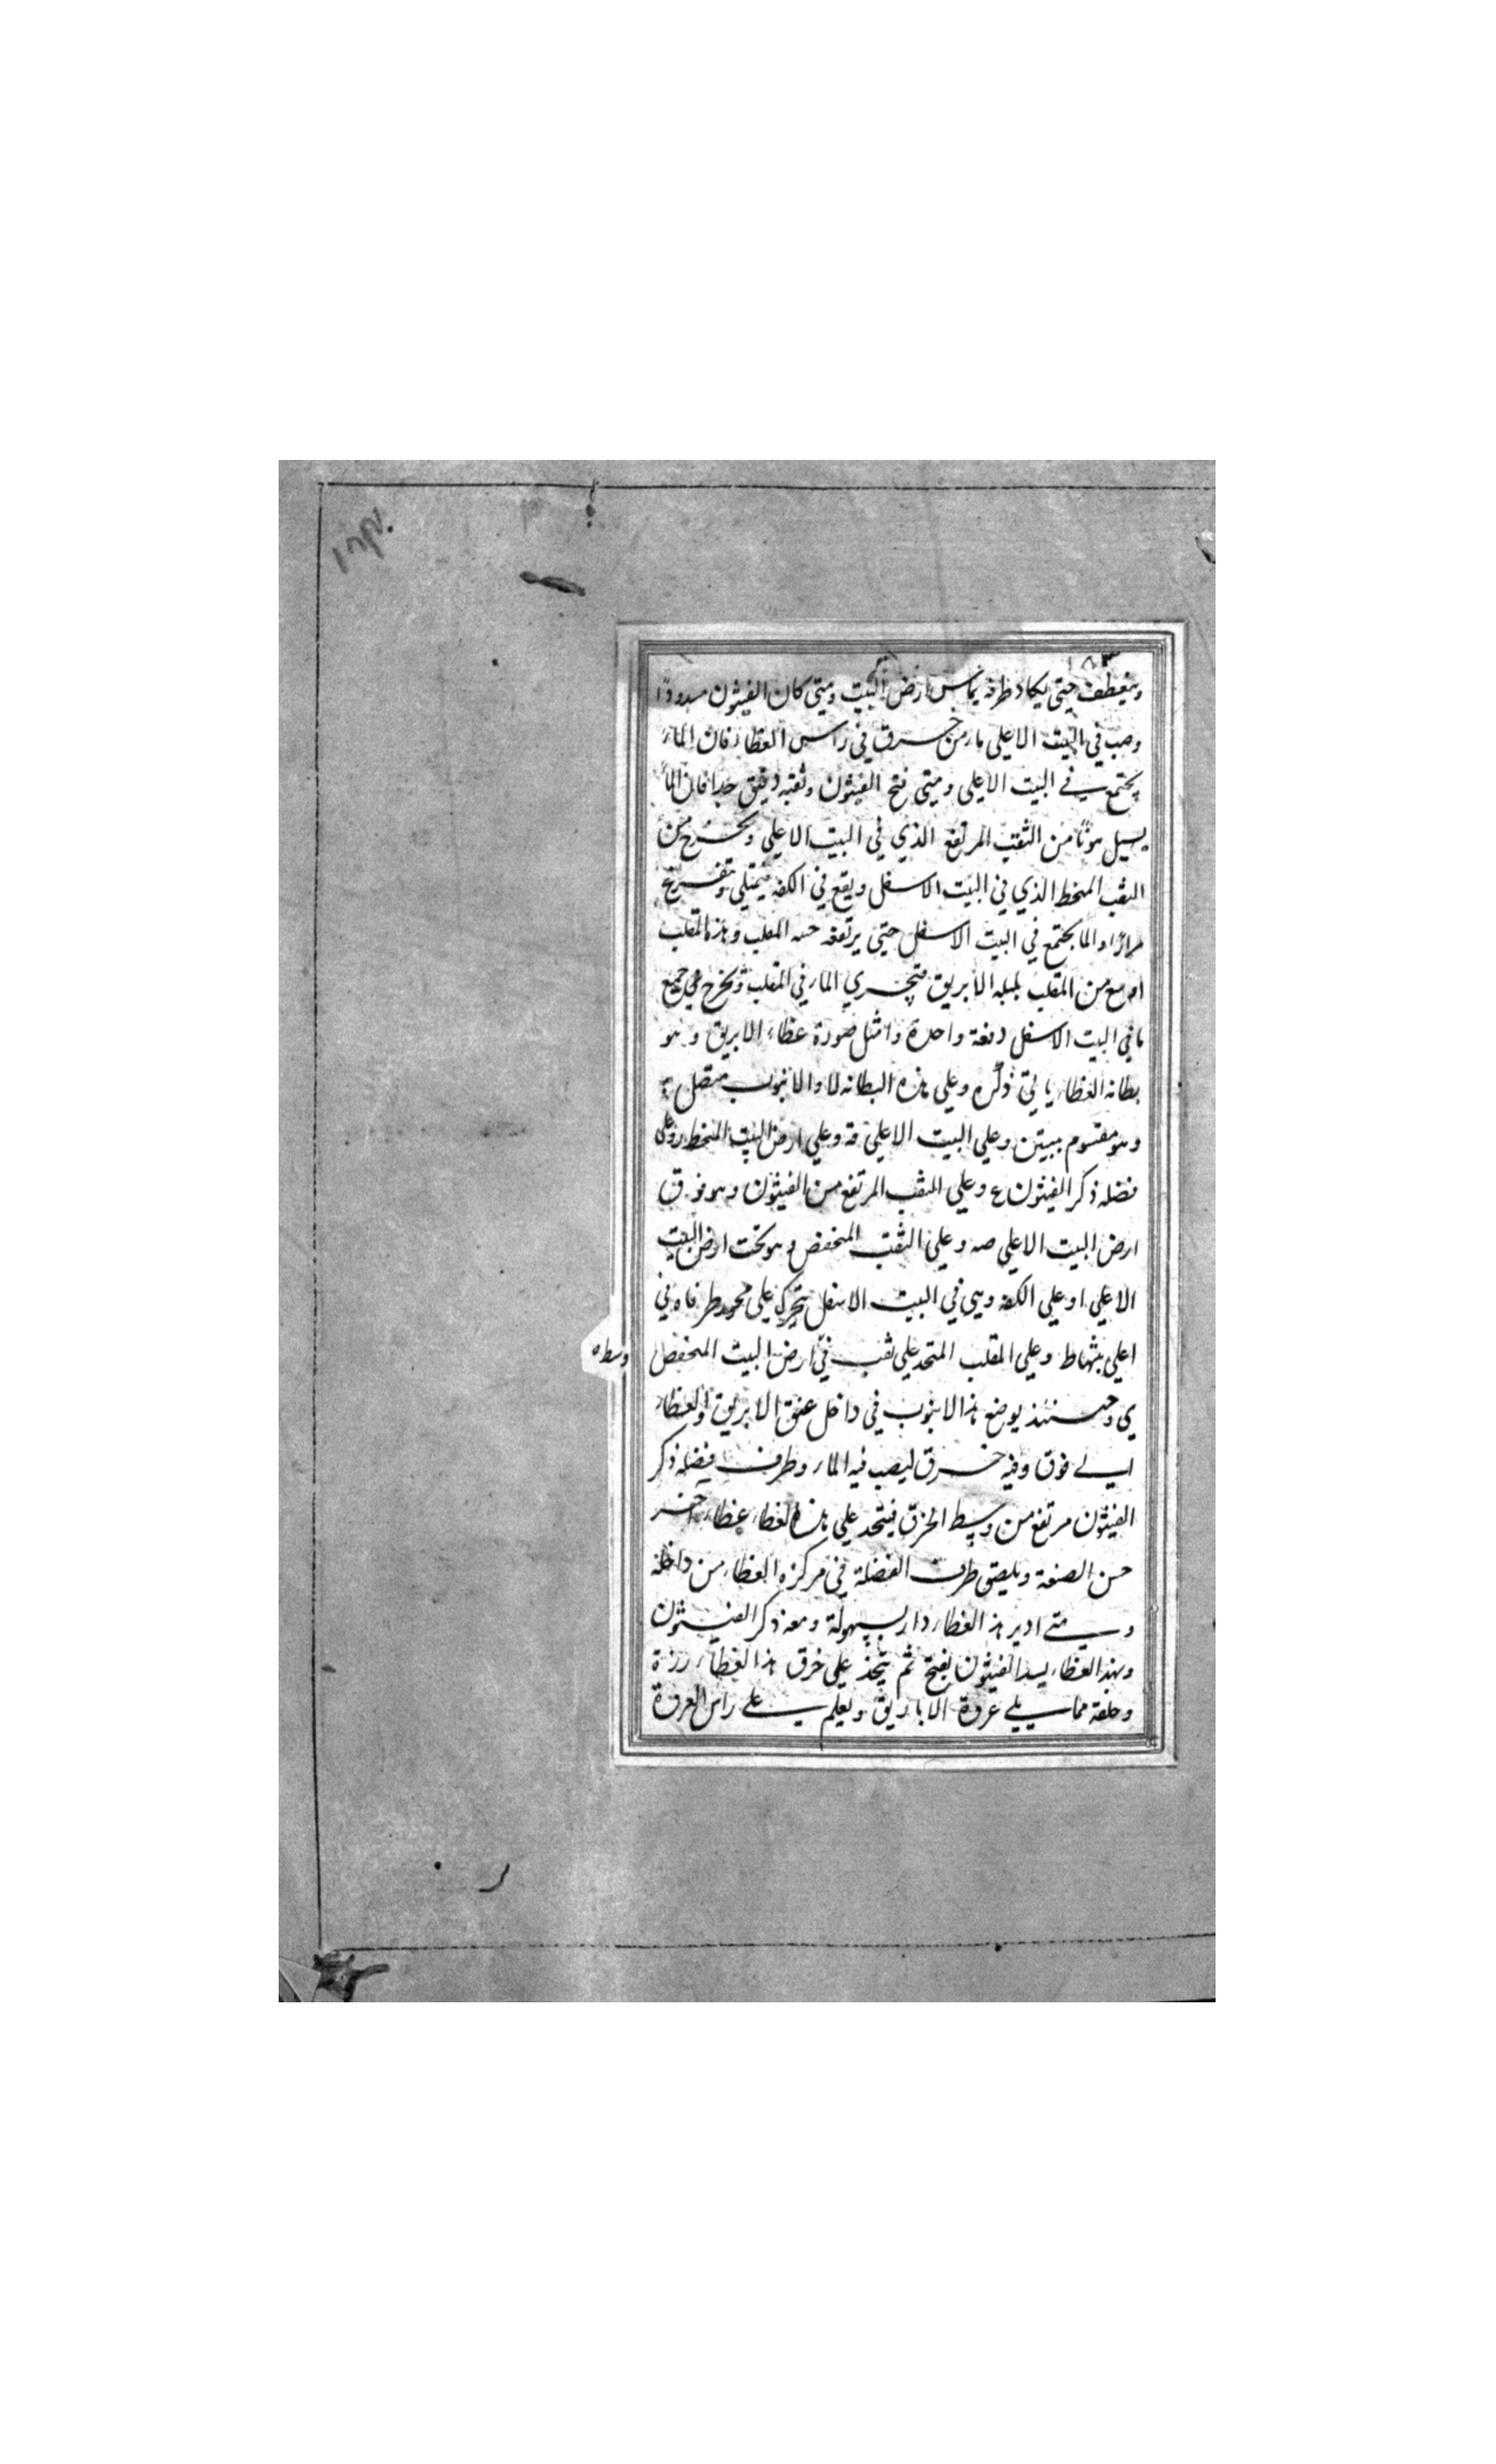 ١٨٣
وينعطف حتى يكاد طرفه يماس ارض البيت ومتى كان الفيثون مسدودًا
وصب في البيت الاعلي ماء من خرق في راس الغطاء فان الماء
يجتمع في البيت الاعلي ومتى فتح الفيثون وثقبه دقيق جدا فان الماء
يسيل هونًا من الثقب المرتفع الذي في البيت الاعلي ويخرج من
الثقب المنحط الذي في البيت الاسفل ويقع في الكفه فيمتلي ويتفرغ
مرارًا والما يجتمع في البيت الاسفل حتى يرتفع المقلب وهذه المقلب
اوسع من المقلب بلبله الابريق فيجري الماء في المقلب ويخرج جميع
ما في البيت الاسفل دفعة واحدة وامثل صورة غطاء الابريق وهو
بطانه الغطاء ياتي ذكره وعلي هذه البطانه لا والانبوب متصل به
وهو مقسوم ببيتين وعلي البيت الاعلي قه وعلي ارض البيت المنحط ر وعلي
فضله ذكر الفيثون ع وعلي الثقب المرتفع من الفيثون وهو فوق
ارض البيت الاعلي صه وعلي الثقب المنخفض وهو تحت ارض البيت
الاعلي ا وعلي الكفه وهي في البيت الاسفل تتحرك علي محور طرفاه في
اعلي بيتها ط وعلي المقلب المتحد علي ثقب في ارض البيت المنخفض
وسطه
ي وحينئذ يوضع هذا الانبوب في داخل عنق الابريق والغطاء
الي فوق وفيه خرق ليصب فيه الماء وطرف فضله ذكر
الفيثون مرتفع من وسط الخرق فيتخذ علي هذه الغطاء غطاء اخر
حسن الصنعة ويلصق طرف الفضلة في مركزه الغطاء من داخله
ومتى ادير هذا الغطاء دار بسهولة ومعه ذكر الفيثون
وبهذا الغطاء يسد الفيثون يفتح ثم يتخذ علي خرق هذا الغطاء رزة
وحلقة مما يلي عروة الاباريق ويعلم علي راس العروة